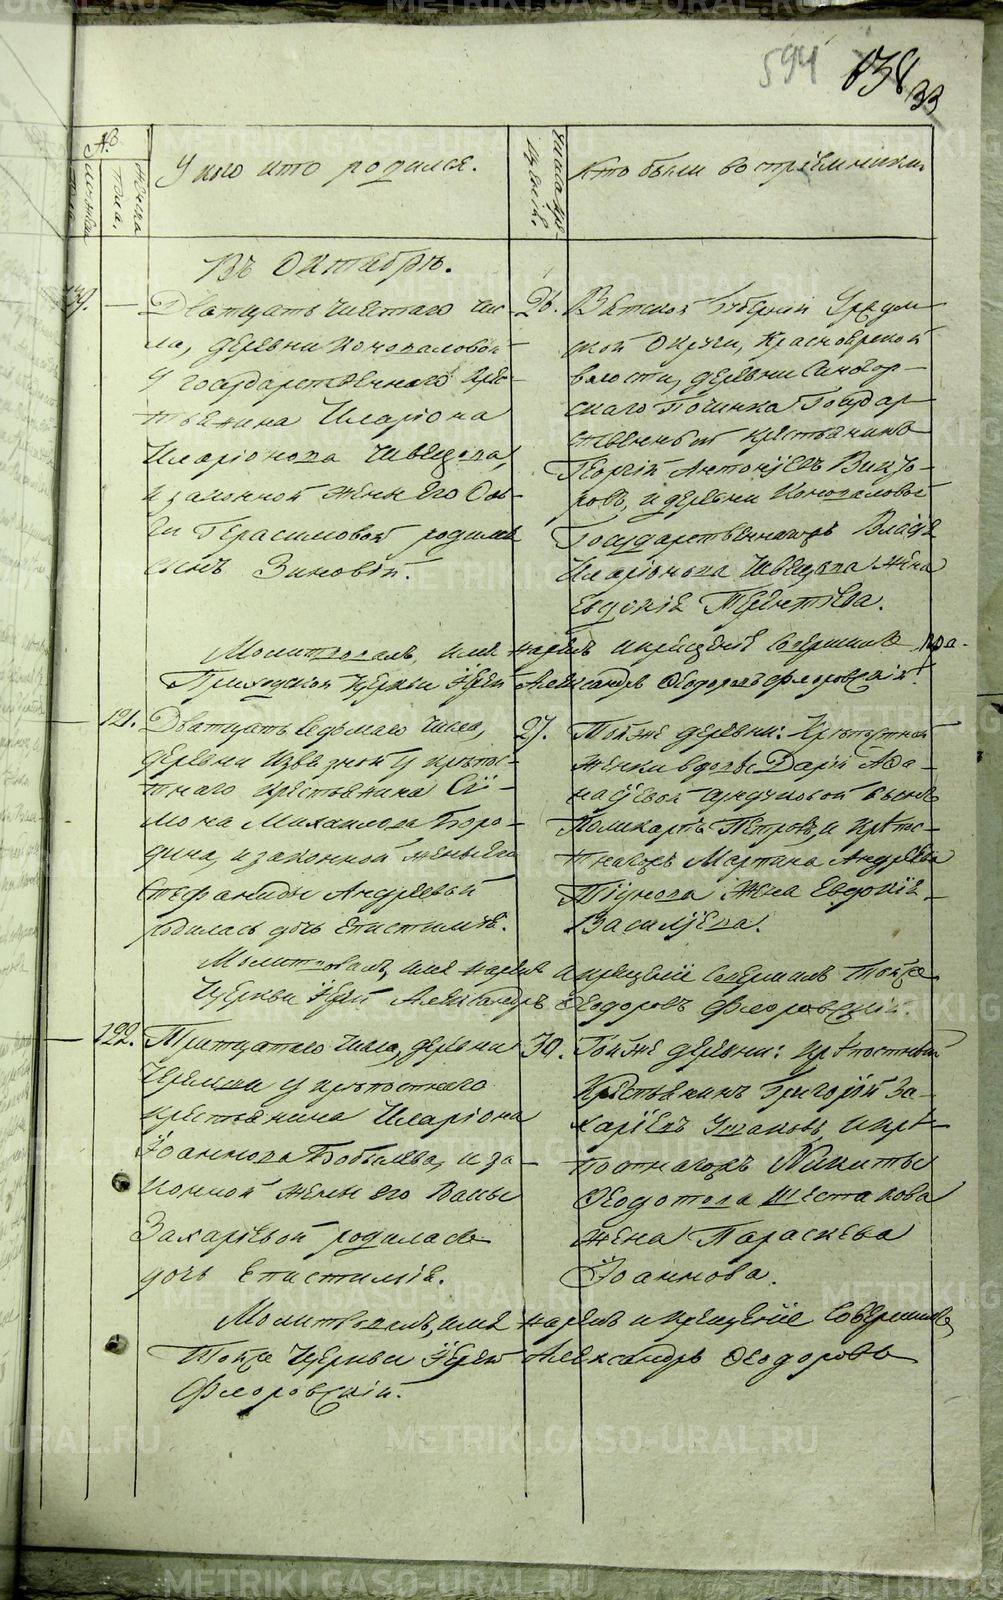 594 638 133
№
У кого кто родился.
Числа кре-
щенія.
Кто были восприемники.
Въ Октябрѣ.
139. — Дватцать шестаго чис-
ла, деревни Коноваловой
у государственнаго крес-
тьянина Иларіона
Иларіонова Швецова,
и законной жены его Сов-
ьи Герасимовой родился
сынъ Зиновій.
26. Вятской Губерніи Уржум-
ской Округи,
волости, деревни
Починка Государ-
ственный крестьянинъ
Георгій Антоніевъ
и деревни Коноваловой
Государственнагожъ Влася
Иларіонова Швецова жена
Евдокія Терентьева.
Молитвовалъ, имя нарекъ и крещеніе совершилъ
Приходской Церкви Іерей Александръ Ѳеодоровъ Флоровскій.
121. Дватцать седьмаго числа,
деревни Извѣзной у крѣпос-
тнаго крестьянина Сѵ-
мона Михаилова Боро-
дина, и законной жены его
Стефаниды Андреевой
родилась дочь Епистимія.
27. Тойже деревни: Крѣпостной
женки вдовы Даріи Аѳа-
насіевой сынъ
Поликарпъ Петровъ, и крѣпос-
тнагожъ Мартина Андреева
Тіунова жена Евфимія
Васильева.
Молитвовалъ, имя нарекъ и крещеніе совершилъ тойже
Церкви Іерей Александръ Ѳеодоровъ Флоровскій.
122. Тритцатаго числа, деревни
у крѣпостнаго
крестьянина Иларіона
Іоаннова Бобылева, и за-
конной жены его Вассы
Захаріевой родилась
дочь Епистимія.
30. Тойже деревни: крѣпостный
Крестьянинъ Григорій За-
харіевъ Ушаковъ, и крѣ-
постнагожъ Никиты
Ѳеодотова Шестакова
жена Параскева
Іоаннова.
Молитвовалъ, имя нарекъ и крещеніе совершилъ
тойже Церкви Іерей Александръ Ѳеодоровъ
Флоровскій.
METRIKI.GASO-URAL.RU